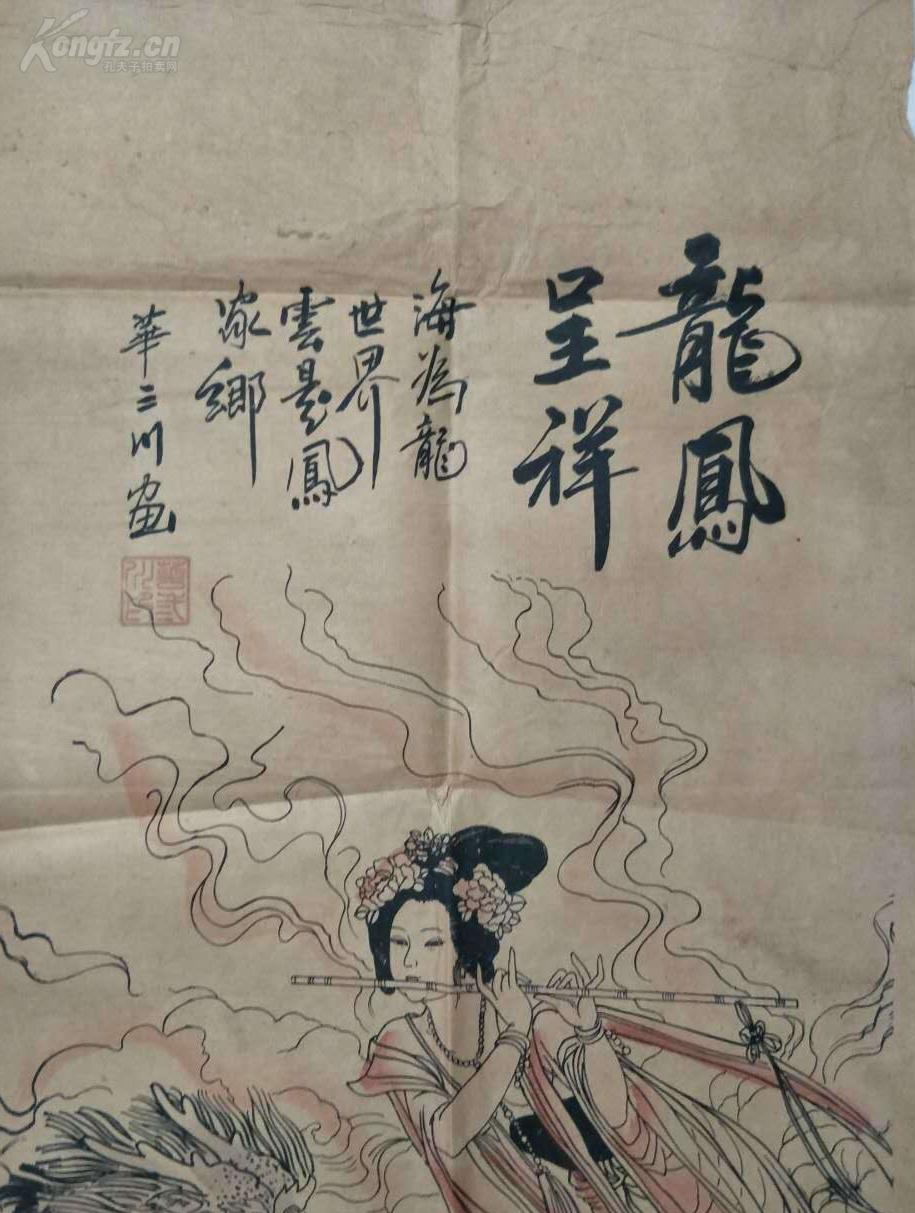 龍鳳
呈祥
海為龍
世界
雲是鳳
家鄉
華三川畫
Kongfz.cn
孔夫子拍卖网